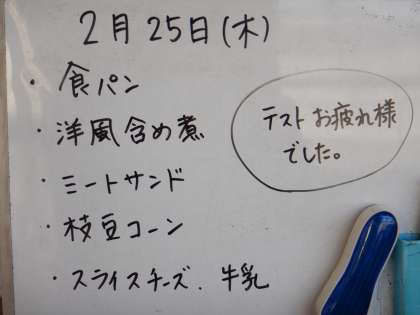 2月25日(木)
・食パン
・洋風含め煮
・ミートサンド
・枝豆コーン
・スライスチーズ.牛乳
テストお疲れ様
でした。